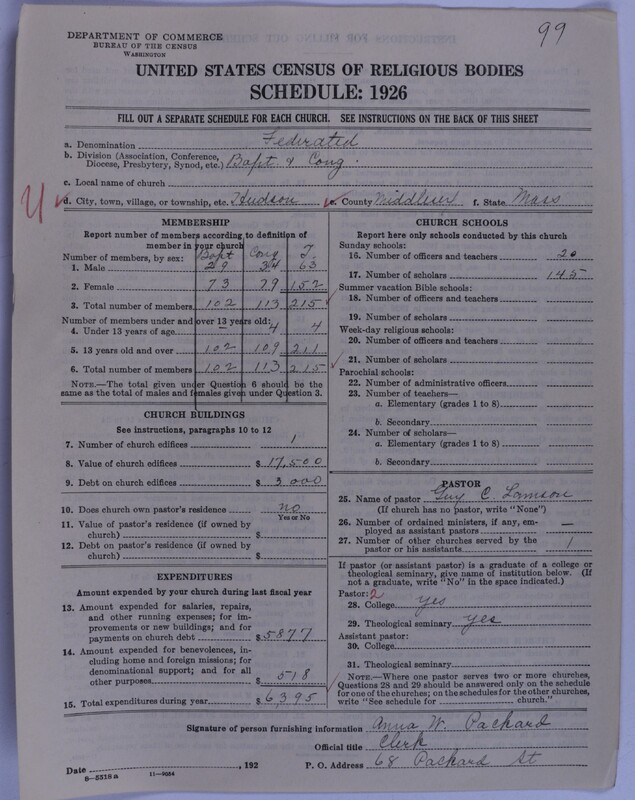 99
DEPARTMENT OF COMMERCE
BUREAU OF THE CENSUS
WASHINGTON
UNITED STATES CENSUS OF RELIGIOUS BODIES
SCHEDULE: 1926
FILL OUT A SEPARATE SCHEDULE FOR EACH CHURCH. SEE INSTRUCTIONS ON THE BACK OF THIS SHEET
a. Denomination Federated
b. Division (Association, Conference,
Diocese, Presbytery, Synod, etc.) Bapt & Cong.
c. Local name of church
d. City, town, village, or township, etc. Hudson e. County Middlesex f. State Mass
MEMBERSHIP
Report number of members according to definition of
member in your church
Number of members, by sex: Bapt Cong T
1. Male 29 34 63
2. Female 73 79 152
3. Total number of members 102 113 215
Number of members under and over 13 years old:
4. Under 13 years of age — 4 4
5. 13 years old and over 102 109 211
6. Total number of members 102 113 215
NOTE.—The total given under Question 6 should be the
same as the total of males and females given under Question 3.
CHURCH BUILDINGS
See instructions, paragraphs 10 to 12
7. Number of church edifices 1
8. Value of church edifices $ 17,500
9. Debt on church edifices $ 3,000
10. Does church own pastor's residence no
Yes or No
11. Value of pastor's residence (if owned by
church) $
12. Debt on pastor's residence (if owned by
church) $
EXPENDITURES
Amount expended by your church during last fiscal year
13. Amount expended for salaries, repairs,
and other running expenses; for im-
provements or new buildings; and for
payments on church debt $ 5877
14. Amount expended for benevolences, in-
cluding home and foreign missions; for
denominational support; and for all
other purposes $ 518
15. Total expenditures during year $ 6395
CHURCH SCHOOLS
Report here only schools conducted by this church
Sunday schools:
16. Number of officers and teachers 20
17. Number of scholars 145
Summer vacation Bible schools:
18. Number of officers and teachers
19. Number of scholars
Week-day religious schools:
20. Number of officers and teachers
21. Number of scholars
Parochial schools:
22. Number of administrative officers
23. Number of teachers—
a. Elementary (grades 1 to 8)
b. Secondary
24. Number of scholars—
a. Elementary (grades 1 to 8)
b. Secondary
PASTOR
25. Name of pastor Guy C. Lamson
(If church has no pastor, write "None")
26. Number of ordained ministers, if any, em-
ployed as assistant pastors —
27. Number of other churches served by the
pastor or his assistants 1
If pastor (or assistant pastor) is a graduate of a college or
theological seminary, give name of institution below. (If
not a graduate, write "No" in the space indicated.)
Pastor: 2
28. College yes
29. Theological seminary yes
Assistant pastor:
30. College
31. Theological seminary
NOTE.—Where one pastor serves two or more churches,
Questions 28 and 29 should be answered only on the schedule
for one of the churches; on the schedules for the other churches,
write "See schedule for church."
Signature of person furnishing information Anna W. Packard
Official title Clerk
Date , 192 P. O. Address 68 Packard St
8-5518 a 11-9054